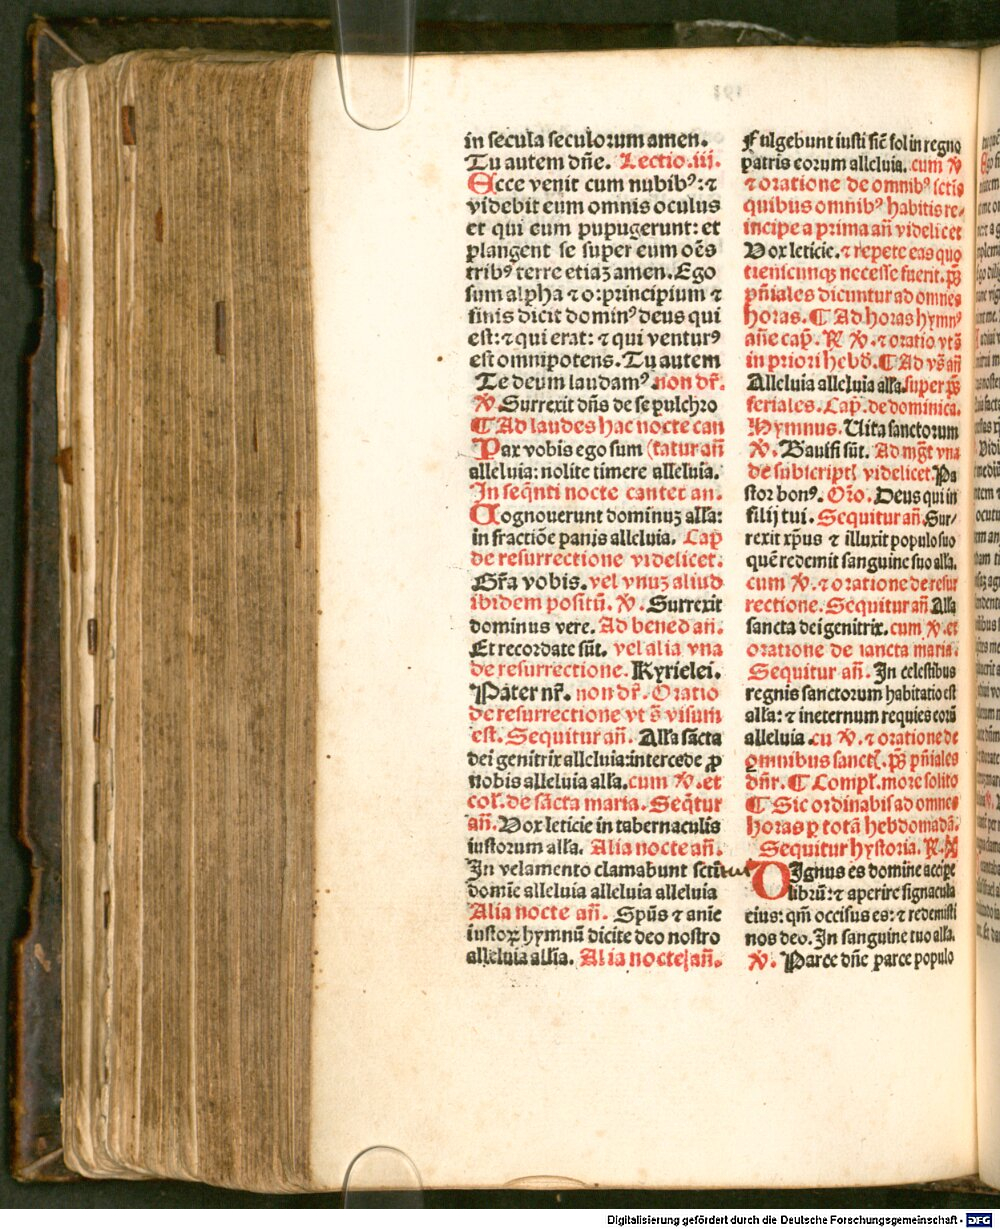 in secula seculorum amen.
Tu autem dñe. Lectio.iij.
Ecce venit cum nubibꝰ: ⁊
videbit eum omnis oculus
et qui eum pupugerunt: et
plangent se super eum oẽs
tribꝰ terre etiaꝫ amen. Ego
sum alpha ⁊ o: principium ⁊
finis dicit dominꝰ deus qui
est: ⁊ qui erat: ⁊ qui venturꝰ
est omnipotens. Tu autem
Te deum laudamꝰ non dr̃.
℣. Surrexit dñs de sepulchro
¶ Ad laudes hac nocte can
Pax vobis ego sum (tatur añ
alleluia: nolite timere alleluia.
In seq̃nti nocte cantet an.
Cognouerunt dominuꝫ alľa:
in fractiõe panis alleluia. Cap̃
de resurrectione videlicet.
Gr̃a vobis. vel vnuꝫ aliud
ibidem positũ. ℣. Surrexit
dominus vere. Ad bened añ.
Et recordate sũt. vel alia vna
de resurrectione. Kyrielei.
Pater nr̃. non dr̃. Oratio
de resurrectione vt s̃ visum
est. Sequitur añ. Alľa sãcta
dei genitrix alleluia: intercede ꝓ
nobis alleluia alľa. cum ℣. et
col̃. de sãcta maria. Seq̃tur
añ. Vox leticie in tabernaculis
iustorum alľa. Alia nocte añ.
In velamento clamabunt scti
domie alleluia alleluia alleluia
Alia nocte añ. Spũs ⁊ anie
iustoꝝ hymnũ dicite deo nostro
alleluia alľia. Alia nocte añ.
Fulgebunt iusti sic̃ sol in regno
patris eorum alleluia. cum ℣
⁊ oratione de omnibꝰ sctis
quibus omnibꝰ habitis re-
incipe a prima añ videlicet
Vox leticie. ⁊ repete eas quo
tienscunqꝫ necesse fuerit. p̃s
pñiales dicuntur ad omnes
horas. ¶ Ad horas hymnꝰ
añe cap̃. ℟ ℣. ⁊ oratio vts̃
in priori hebd̃. ¶ Ad vs̃ añ
Alleluia alleluia alľa. super p̃s
feriales. Cap̃. de dominica.
Hymnus. Uita sanctorum
℣. Gauisi sũt. Ad mg̃t vna
de subscriptꝭ videlicet. Pa
stor bonꝰ. Orõ. Deus qui in
filij tui. Sequitur añ. Sur-
rexit xp̃us ⁊ illuxit populo suo
quẽ redemit sanguine suo alľa.
cum ℣. ⁊ oratione de resur
rectione. Sequitur añ Alľa
sancta dei genitrix. cum ℣. et
oratione de sancta maria.
Sequitur añ. In celestibus
regnis sanctorum habitatio est
alľa: ⁊ in eternum requies eorũ
alleluia. cũ ℣. ⁊ oratione de
omnibus sanctꝭ. p̃s pñiales
dñr. ¶ Compľ. more solito
¶ Sic ordinabis ad omnes
horas ꝑ totã hebdomadã.
Sequitur hystoria. ℟. ℣
DIgnus es domine accipe
librũ: ⁊ aperire signacula
eius: qm̃ occisus es: ⁊ redemisti
nos deo. In sanguine tuo alľa.
℣. Parce dñe parce populo
Digitalisierung gefördert durch die Deutsche Forschungsgemeinschaft - DFG